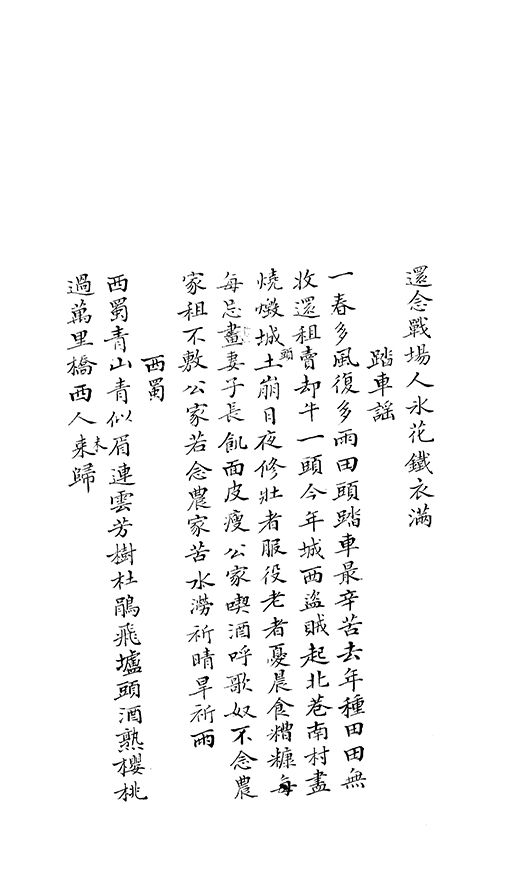 還念戰場人氷花鐵衣滿
踏車謡
一春多風復多雨田頭踏車最辛苦去年種田田無
收還租賣却牛一頭今年城西盜賊起北巷南村盡
燒燬城頭土崩日夜修壯者服役老者憂晨食糟糠每
每忌晝妻子長飢面皮瘦公家喫酒呼歌奴不念農
家租不敷公家若念農家苦水澇祈晴旱祈雨
西蜀
西蜀青山青似眉連雲芳樹杜鵑飛壚頭酒熟櫻桃
過萬里橋西人未來歸